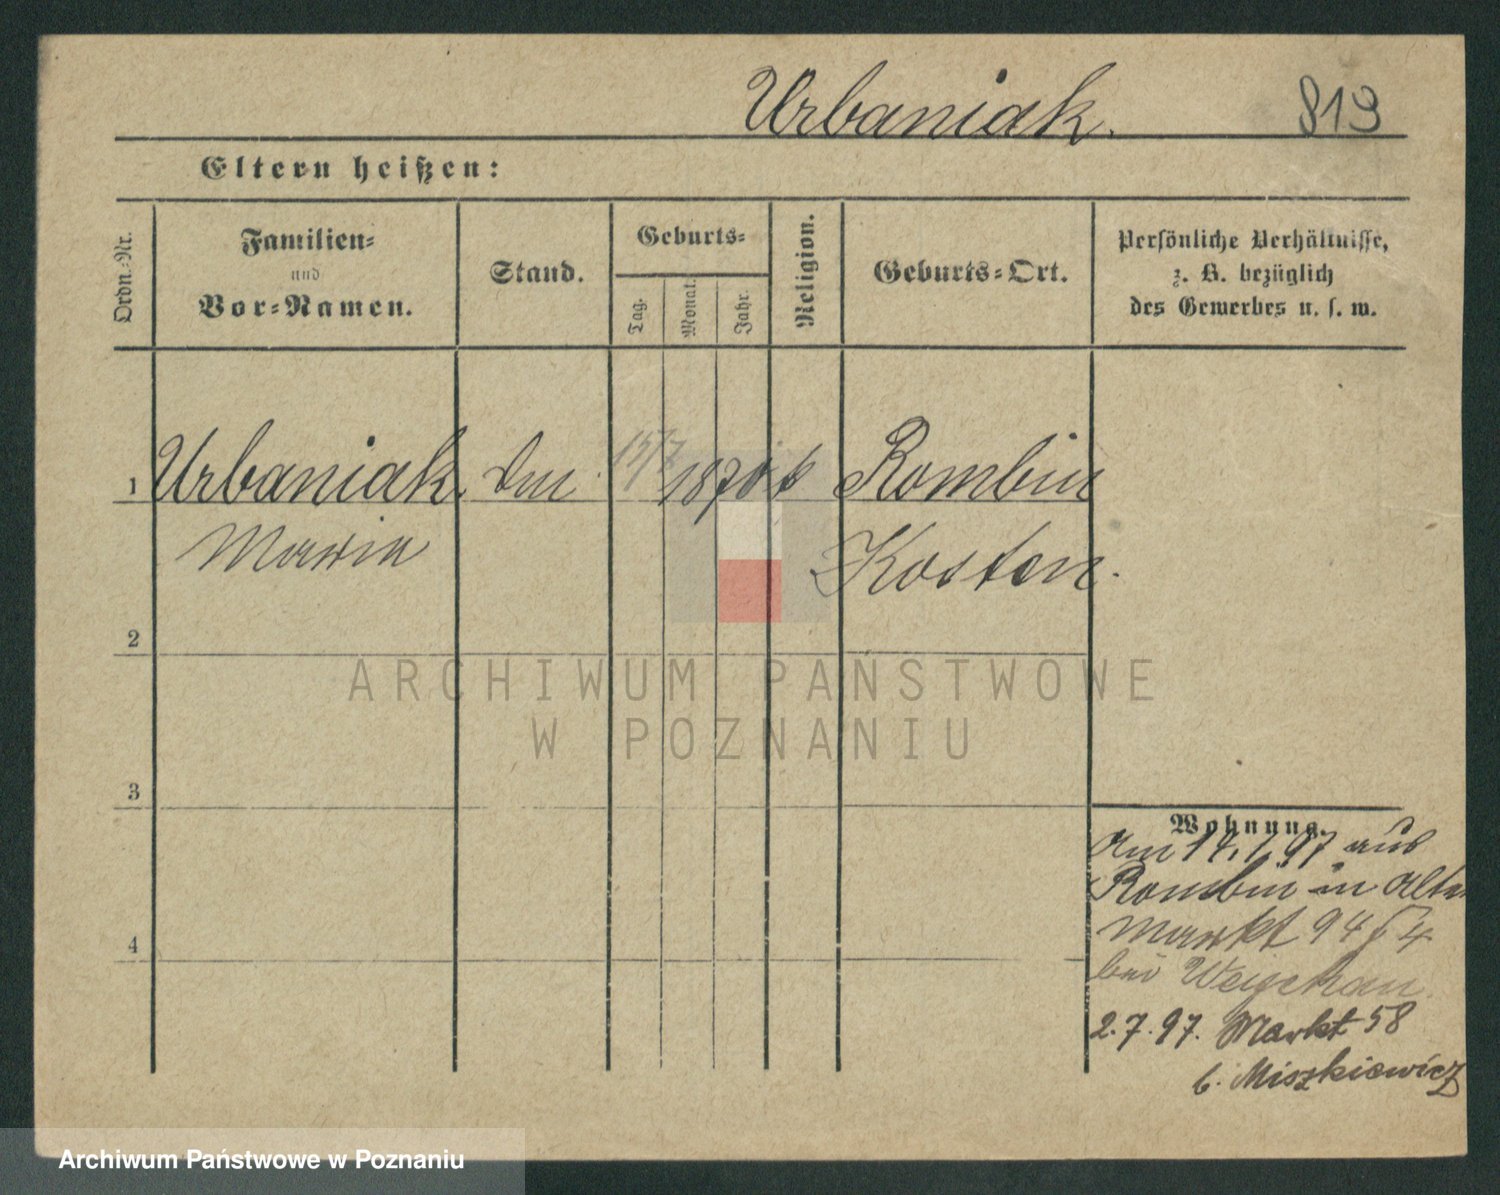 Urbaniak. 819
Eltern heißen:
Ordn.-Nr.
Familien-
und
Vor-Namen.
Stand.
Geburts-
Tag.
Monat.
Jahr.
Religion.
Geburts-Ort.
Persönliche Verhältnisse,
z. B. bezüglich
des Gewerbes u. s. w.
1 Urbaniak. 1870 k Rombin
Maria Kosten.
2
3
4
Wohnung.
Am 14.1.97 aus
Rombin in Alten
Markt 94
bei
2.7.97. Markt 58
b. Miszkiewicz
ARCHIWUM PAŃSTWOWE
W POZNANIU
Archiwum Państwowe w Poznaniu